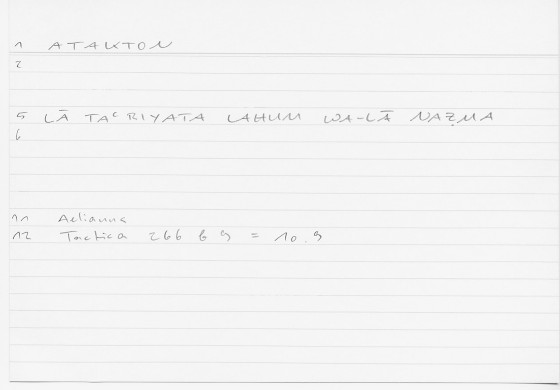 1 ATAKTON
2
5 LĀ TAʿRIYATA LAHUM WA-LĀ NAẒMA
6
11 Aelianus
12 Tactica 266 b 9 = 10.9